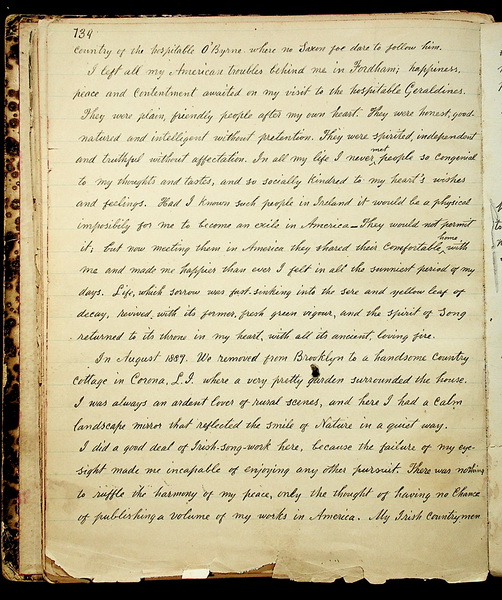 134
country of the hospitable O'Byrne where no Saxon foe dare to follow him.
I left all my American troubles behind me in Fordham; happiness,
peace and contentment awaited on my visit to the hospitable Geraldines.
They were plain, friendly people after my own heart. They were honest, good-
natured and intelligent without pretention. They were spirited, independent
and truthful without affectation. In all my life I never met people so congenial
to my thoughts and tastes, and so socially kindred to my heart's wishes
and feelings. Had I known such people in Ireland it would be a physical
imposibily for me to become an exile in America – They would not permit
it; but now meeting them in America they shared their comfortable home with
me and made me happier than ever I felt in all the sunniest period of my
days. Life, which sorrow was fast sinking into the sere and yellow leaf of
decay, revived, with its former, fresh green vigour, and the spirit of song
returned to its throne in my heart, with all its ancient, loving fire.
In August 1887. We removed from Brooklyn to a handsome Country
Cottage in Corona, L.I. where a very pretty garden surrounded the house.
I was always an ardent lover of rural scenes, and here I had a calm
landscape mirror that reflected the smile of Nature in a quiet way.
I did a good deal of Irish-song-work here, because the failure of my eye-
sight made me incapable of enjoying any other pursuit. There was nothing
to ruffle the harmony of my peace, only the thought of having no Chance
of publishing a volume of my works in America. My Irish Countrymen